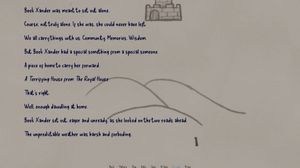 Book Xander was meant to set out alone.
Course, not truly alone. Is she was, she could never have left.
We all carry things with us. Community. Memories. Wisdom.
But Book Xander had a special something from a special someone.
A piece of home to carry her forward.
A Terrifying House from The Royal House
That's right.
Well, enough dawdling at home.
Book Xander set out, eager and unready, as she looked on the two roads ahead.
The unpredictable weather was harsh and foreboding.